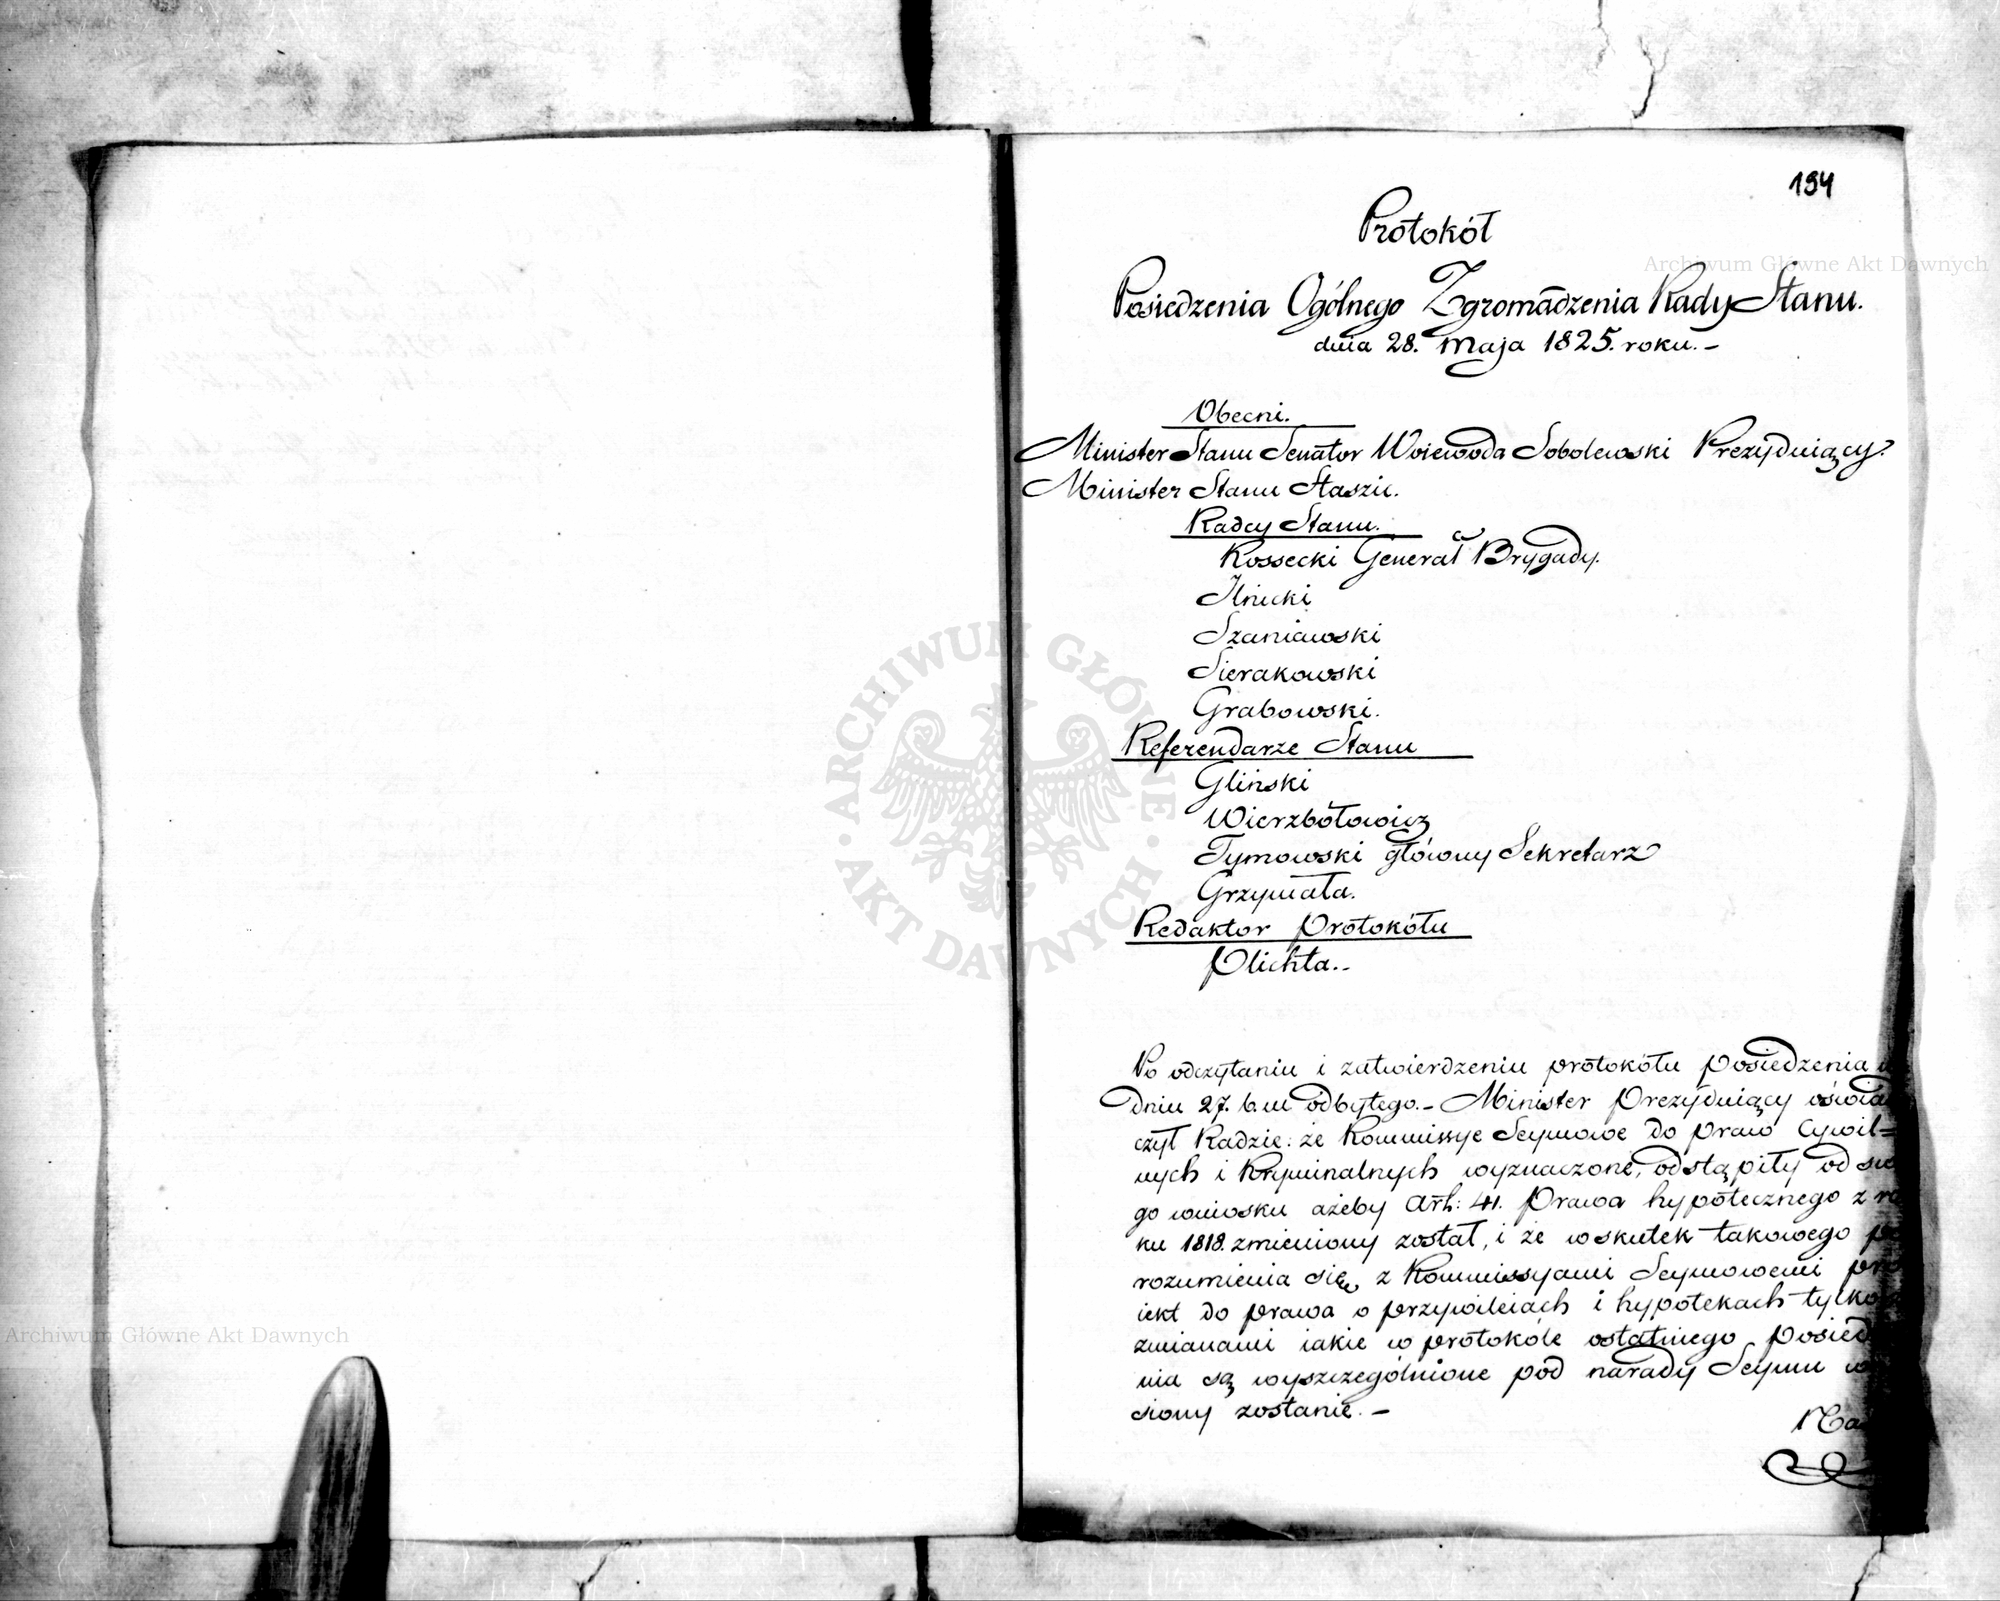 194
Protokół
Posiedzenia Ogólnego Zgromadzenia Rady Stanu.
dnia 28. Maja 1825. roku.-
Obecni.
Minister Stanu Senator Woiewoda Sobolewski Prezyduiący.
Minister Stanu Staszic.
Radcy Stanu.
Kossecki Generał Brygady.
Ilnicki
Szaniawski
Sierakowski
Grabowski.
Referendarze Stanu
Gliński
Wierzbołowicz
Tymowski główny Sekretarz
Grzymała.
Redaktor Protokółu
Plichta.-
Po odczytaniu i zatwierdzeniu protokółu Posiedzenia
dniu 27. b.m odbytego.- Minister Prezyduiący oświad
czył Radzie: że Kommissye Seymowe do praw Cywil=
nych i Kryminalnych wyznaczone, odstąpiły od swe
go wniosku ażeby Art: 41. Prawa hypotecznego z ro
ku 1818. zmieniony został, i że wskutek takowego po
rozumienia się z Kommissyami Seymowemi pro
iekt do prawa o przywileiach i hypotekach tylko
zmianami iakie w protokóle ostatniego Posiedze
nia są wyszczególnione pod narady Seymu
siony zostanie.-
ARCHIWUM GŁÓWNE AKT DAWNYCH
Archiwum Główne Akt Dawnych
Archiwum Główne Akt Dawnych